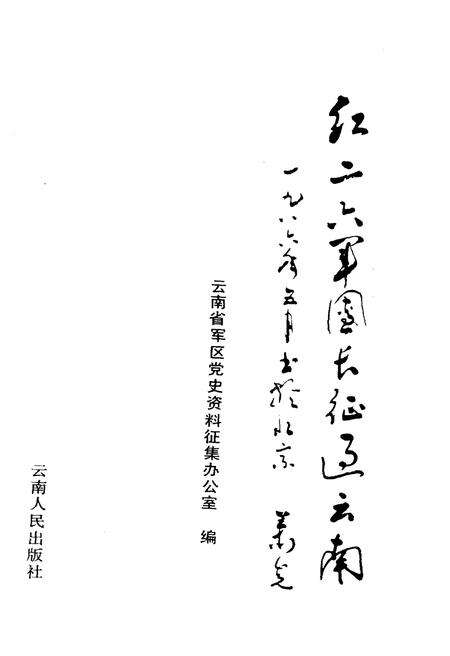 红二六军團长征过云南
一九八六年五月书於北京 萧克
云南省军区党史资料征集办公室 编
云南人民出版社